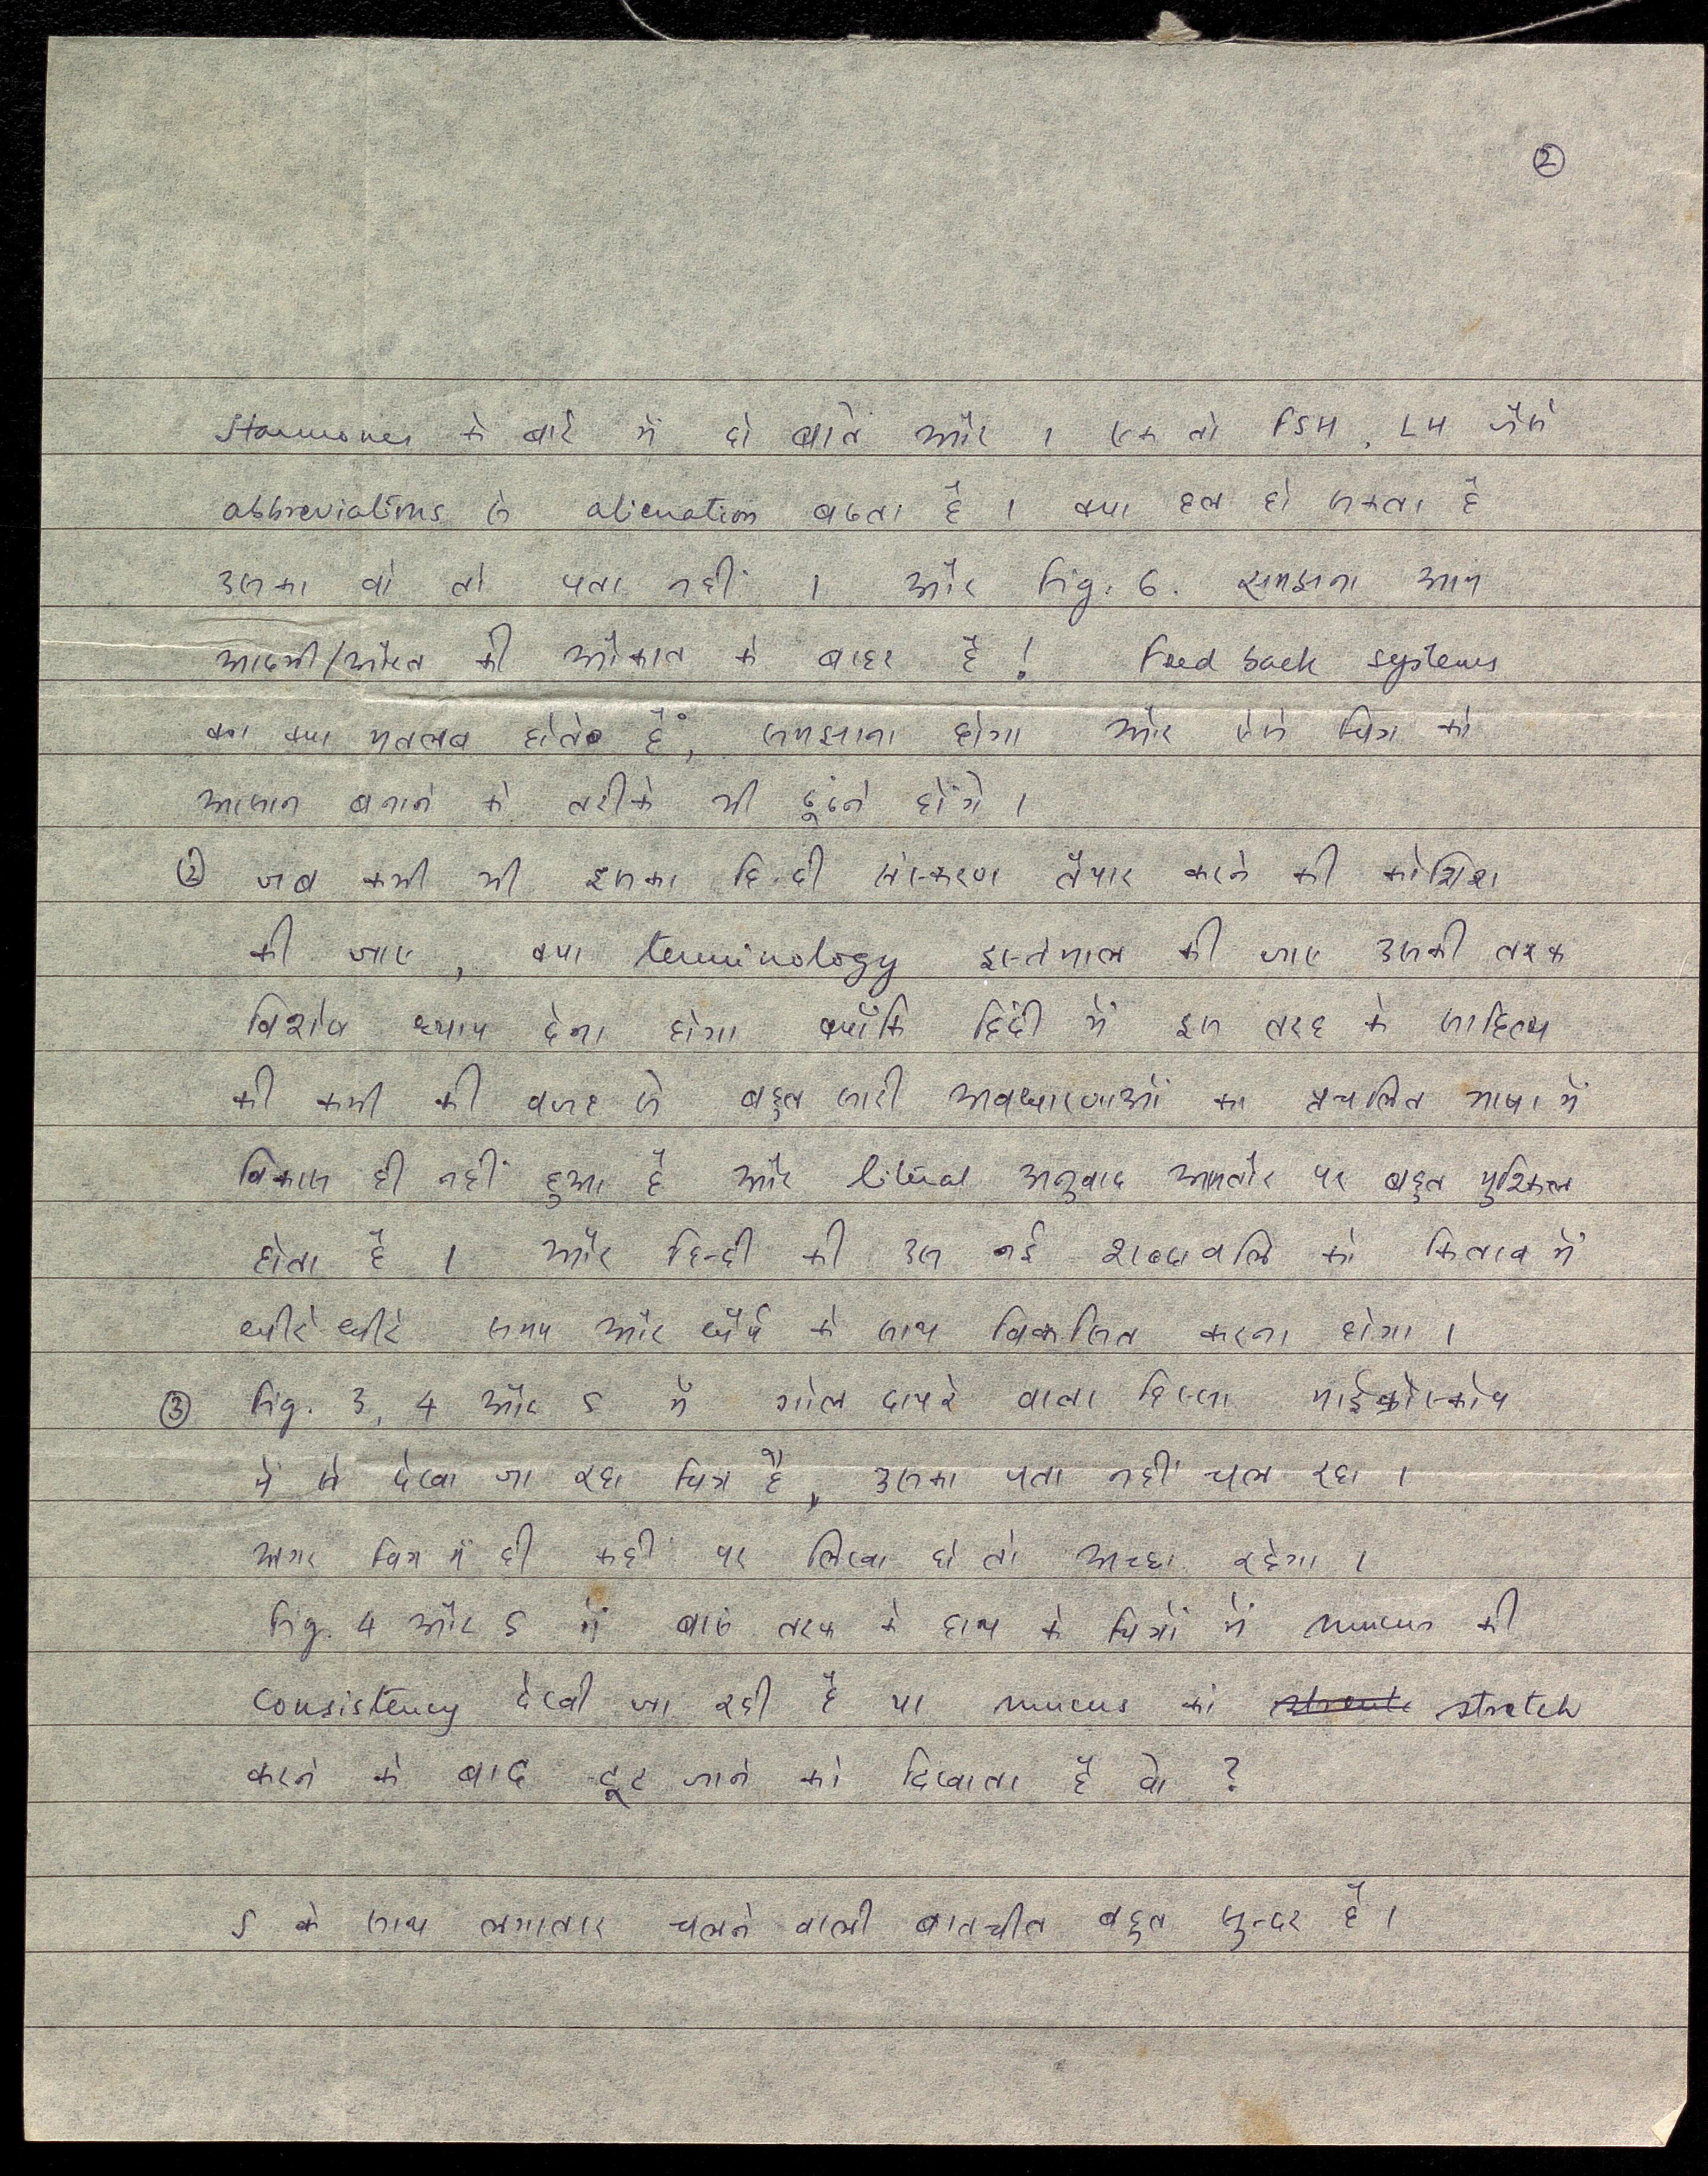 ②
Hormones के बारे में दो बातें और । एक तो FSH, LH जैसे
abbreviations से alienation बढता है । क्या हल हो सकता है
उसका वो तो पता नहीं । और Fig. 6. समझना आम
आदमी/औरत की औकात के बाहर है ! Feed back systems
का क्या मतलब होता है, समझाना होगा और ऐसे चित्र को
आसान बनाने के तरीके भी ढूंढने होंगे ।
② जब कभी भी इसका हिन्दी संस्करण तैयार करने की कोशिश
की जाए, क्या terminology इस्तेमाल की जाए उसकी तरफ
विशेष ध्यान देना होगा क्योंकि हिंदी में इस तरह के साहित्य
की कमी की वजह से बहुत सारी अवधारणाओं का प्रचलित भाषा में
विकास ही नहीं हुआ है और literal अनुवाद आमतौर पर बहुत मुश्किल
होता है । और हिन्दी की उस नई शब्दावलि को किताब में
धीरे धीरे समय और धैर्य के साथ विकसित करना होगा ।
③ Fig. 3, 4 और 5 में गोल दायरे वाला हिस्सा माईक्रोस्कोप
में से देखा जा रहा चित्र है, उसका पता नहीं चल रहा ।
अगर चित्र में ही कहीं पर लिखा हो तो अच्छा रहेगा ।
Fig. 4 और 5 में बाएं तरफ के हाथ के चित्रों में mucus की
consistency देखी जा रही है या mucus को stretch
करने के बाद टूट जाने को दिखाता है वो ?
S के साथ लगातार चलने वाली बातचीत बहुत सुन्दर है ।